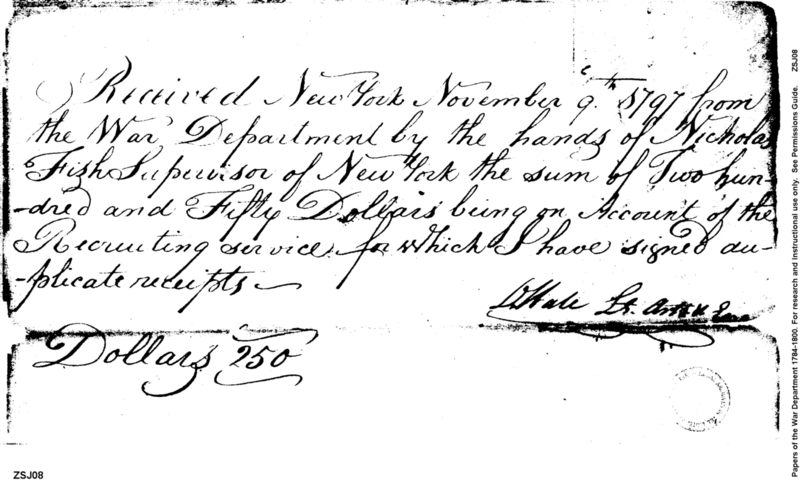 Received New York November 9th. 1797 from
the War Department by the hands of Nicholas
Fish Supervisor of New York the sum of Two hun-
-dred and Fifty Dollars being on Account of the
Recruiting service for which I have signed du-
-plicate receipts
Hale Lt. Art
Dollars 250
ZSJ08
Papers of the War Department 1784-1800. For research and instructional use only. See Permissions Guide. ZSJ08